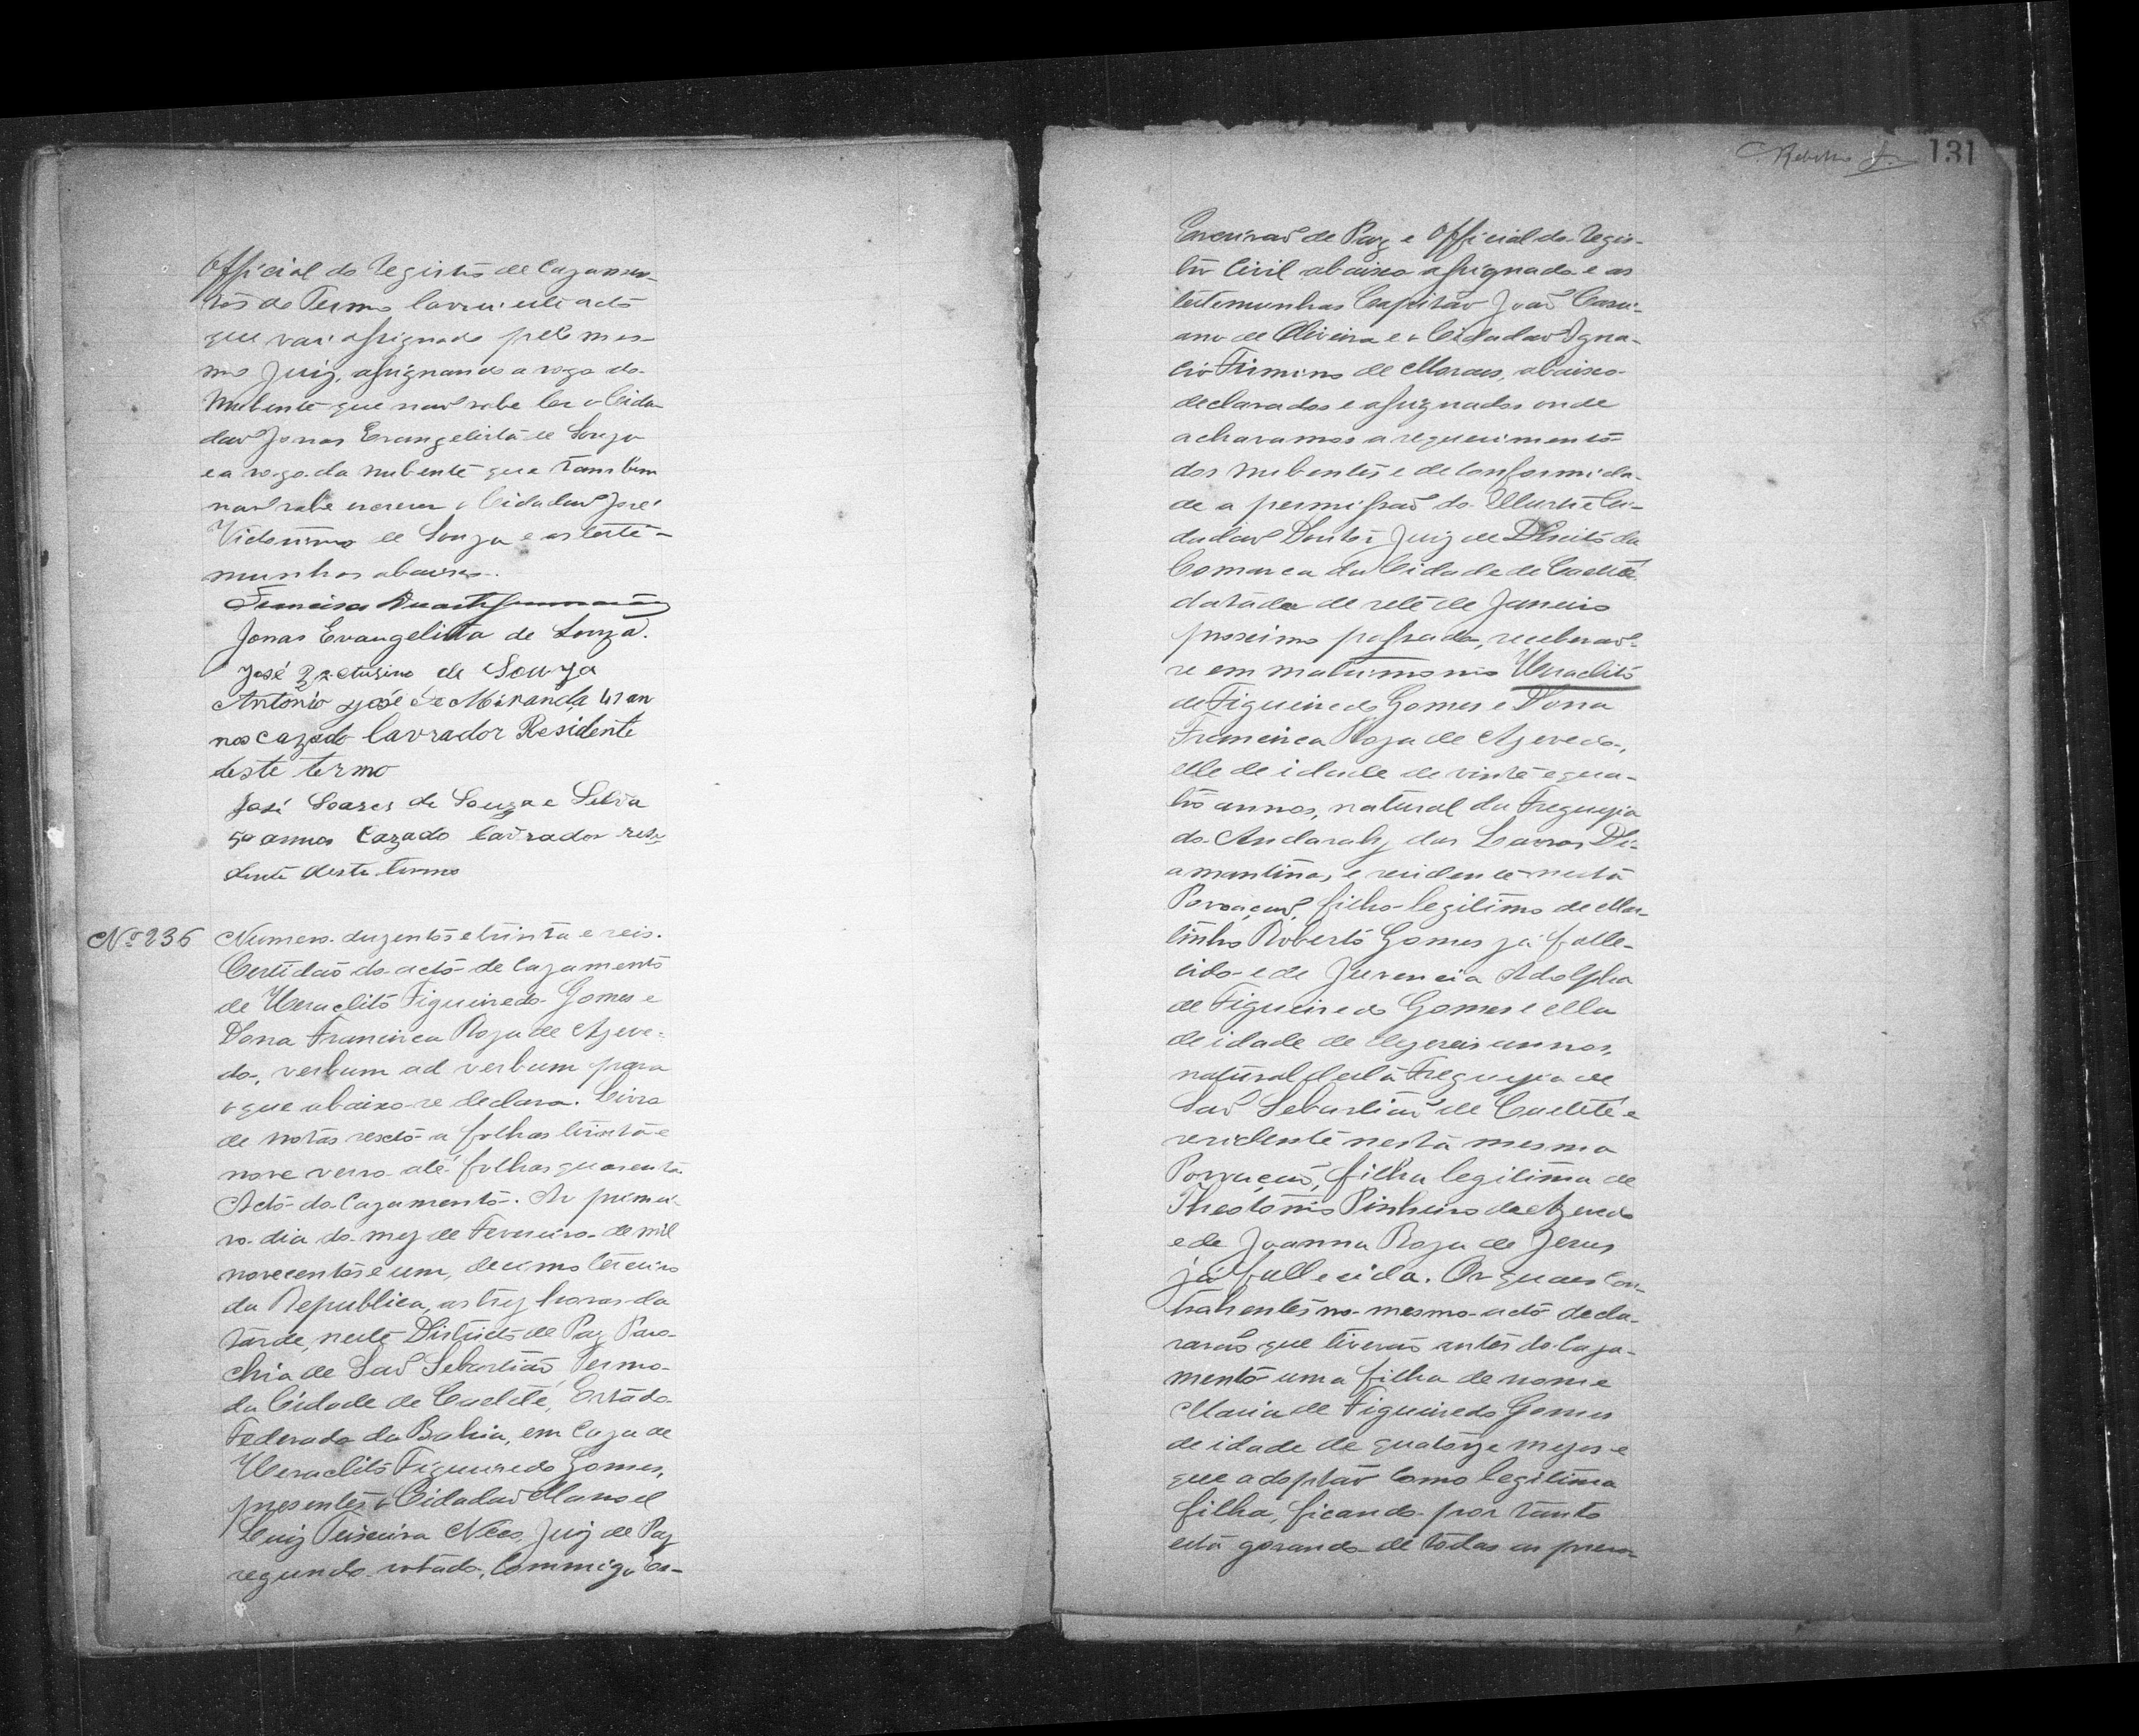 Official do Registro de Cazamen-
tos do Termo lavrei este acto
que vai assignado pelo mes-
mo Juiz, assignando a rogo do
Nubente que naõ sabe ler o Cida-
daõ Jonas Evangelista de Souza
e a rogo da nubente que tambem
naõ sabe escrever o Cidadaõ José
de Souza e as teste-
munhas abaixo.
Francisco Duarte
Jonas Evangelista de Souza.
José de Souza
Antonio José de Miranda 41 an
nos cazado lavrador Residente
deste termo
José Soares de Souza e Silva
50 annos Cazado lavrador resi
dente deste termo
Nº 236
Numero duzentos e trinta e seis.
Certidaõ do acto de cazamento
de Heraclito Figueiredo Gomes e
Dona Francisca Roza de Azeve-
do, verbum ad verbum para
o que abaixo se declara. Livro
de notas sexto a folhas trinta e
nove verso até folhas quarenta.
Acto do Cazamento. Ao primei-
ro dia do mez de Fevereiro de mil
novecentos e um, decimo terceiro
da Republica, as trez horas da
tarde, neste Districto de Paz Paro-
chia de Saõ Sebastiaõ, Termo
da Cidade de Caeteté, Estado
Federado da Bahia, em Caza de
Heraclito Figueiredo Gomes,
presentes o Cidadaõ Manoel
Luiz Teixeira Neco, Juiz de Paz
segundo votado, Commigo Es-
131
crivaõ de Paz e Official do Regis-
tro Civil abaixo assignado e as
testemunhas Capitaõ Joaõ Cassi-
ano de Oliveira e o Cidadaõ Igna-
cio Firmino de Moraes, abaixo
declarados e assignados onde
achavamos a requerimento
dos nubentes e de conformida-
de a permissaõ do Illustre Ci-
dadaõ Doutor Juiz de Direito da
Comarca da Cidade de Caeteté
datada de sete de Janeiro
proximo passado, receberaõ-
se em matrimonio Heraclito
de Figueiredo Gomes e Dona
Francisca Roza de Azevedo,
elle de idade de vinte e qua-
tro annos, natural da Freguezia
do Andarahy das Lavras Di-
amantina, e residente nesta
Povoaçaõ, filho legitimo de Mar-
tinho Roberto Gomes já falle-
cido e de Juvencia Adolpha
de Figueiredo Gomes e ella
de idade de dezeseis annos,
natural desta Freguezia de
Saõ Sebastiaõ de Caeteté e
residente nesta mesma
Povoaçaõ, filha legitima de
Theotonio Pinheiro de Azevedo
e de Joanna Roza de Jesus
já fallecida. Os quaes con-
trahentes no mesmo acto decla-
raraõ que tiveraõ antes do caza-
mento uma filha de nome
Maria de Figueiredo Gomes
de idade de quatorze mezes e
que adoptaõ como legitima
filha, ficando por tanto
esta gosando de todas as prero-